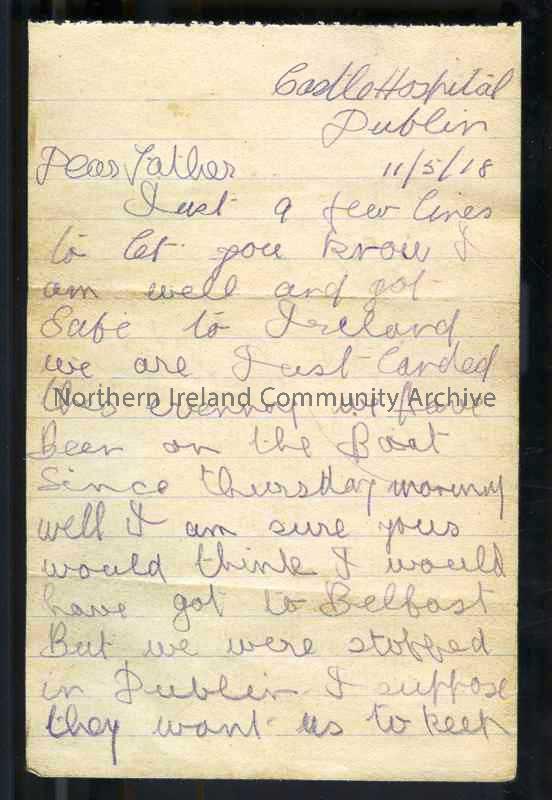 Castle Hospital
Dublin
Dear Father 11/5/18
Just a few lines
to let you know I
am well and got
Safe to Ireland
we are Just landed
this evening we have
Northern Ireland Community Archive
Been on the Boat
Since thursday morning
well I am sure yous
would think I would
have got to Belfast
But we were stopped
in Dublin I suppose
they want us to keep